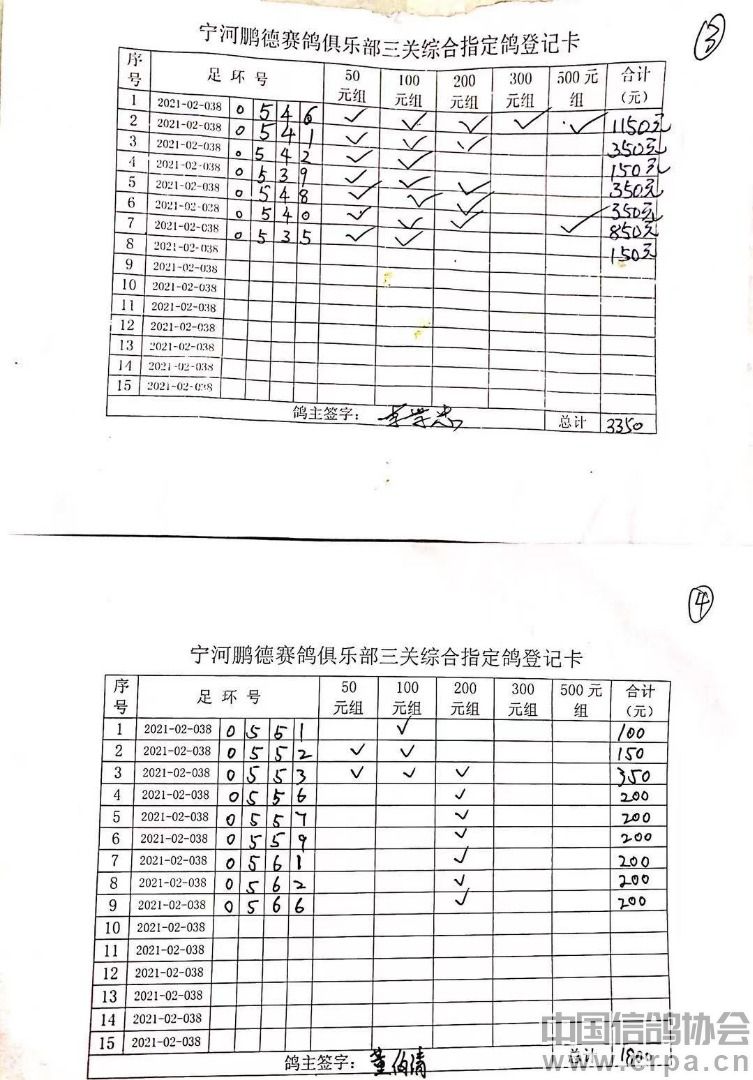 ③
宁河鹏德赛鸽俱乐部三关综合指定鸽登记卡
序号 足环号 50元组 100元组 200元组 300元组 500元组 合计(元)
1 2021-02-038 0546 ✓ ✓ ✓ ✓ ✓ 1150元
2 2021-02-038 0541 ✓ ✓ ✓ 350元
3 2021-02-038 0542 ✓ ✓ 150元
4 2021-02-038 0539 ✓ ✓ ✓ 350元
5 2021-02-038 0548 ✓ ✓ ✓ 350元
6 2021-02-038 0540 ✓ ✓ ✓ ✓ 850元
7 2021-02-038 0535 ✓ ✓ 150元
8 2021-02-038
9 2021-02-038
10 2021-02-038
11 2021-02-038
12 2021-02-038
13 2021-02-038
14 2021-02-038
15 2021-02-038
鸽主签字: 李学忠 总计 3350
④
宁河鹏德赛鸽俱乐部三关综合指定鸽登记卡
序号 足环号 50元组 100元组 200元组 300元组 500元组 合计(元)
1 2021-02-038 0551 ✓ 100
2 2021-02-038 0552 ✓ ✓ 150
3 2021-02-038 0553 ✓ ✓ ✓ 350
4 2021-02-038 0556 ✓ 200
5 2021-02-038 0557 ✓ 200
6 2021-02-038 0559 ✓ 200
7 2021-02-038 0561 ✓ 200
8 2021-02-038 0562 ✓ 200
9 2021-02-038 0566 ✓ 200
10 2021-02-038
11 2021-02-038
12 2021-02-038
13 2021-02-038
14 2021-02-038
15 2021-02-038
鸽主签字: 董伯清 总计 1800
中国信鸽协会
www.crpa.cn